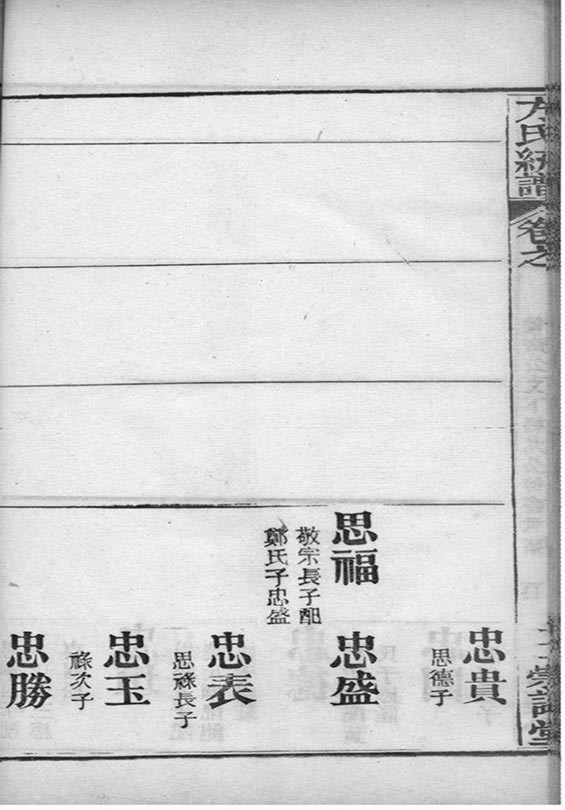 方氏統譜
卷之
忠貴
思德子
思福
敬宗長子配
鄭氏子忠盛
忠盛
忠表
思祿長子
忠玉
祿次子
忠勝